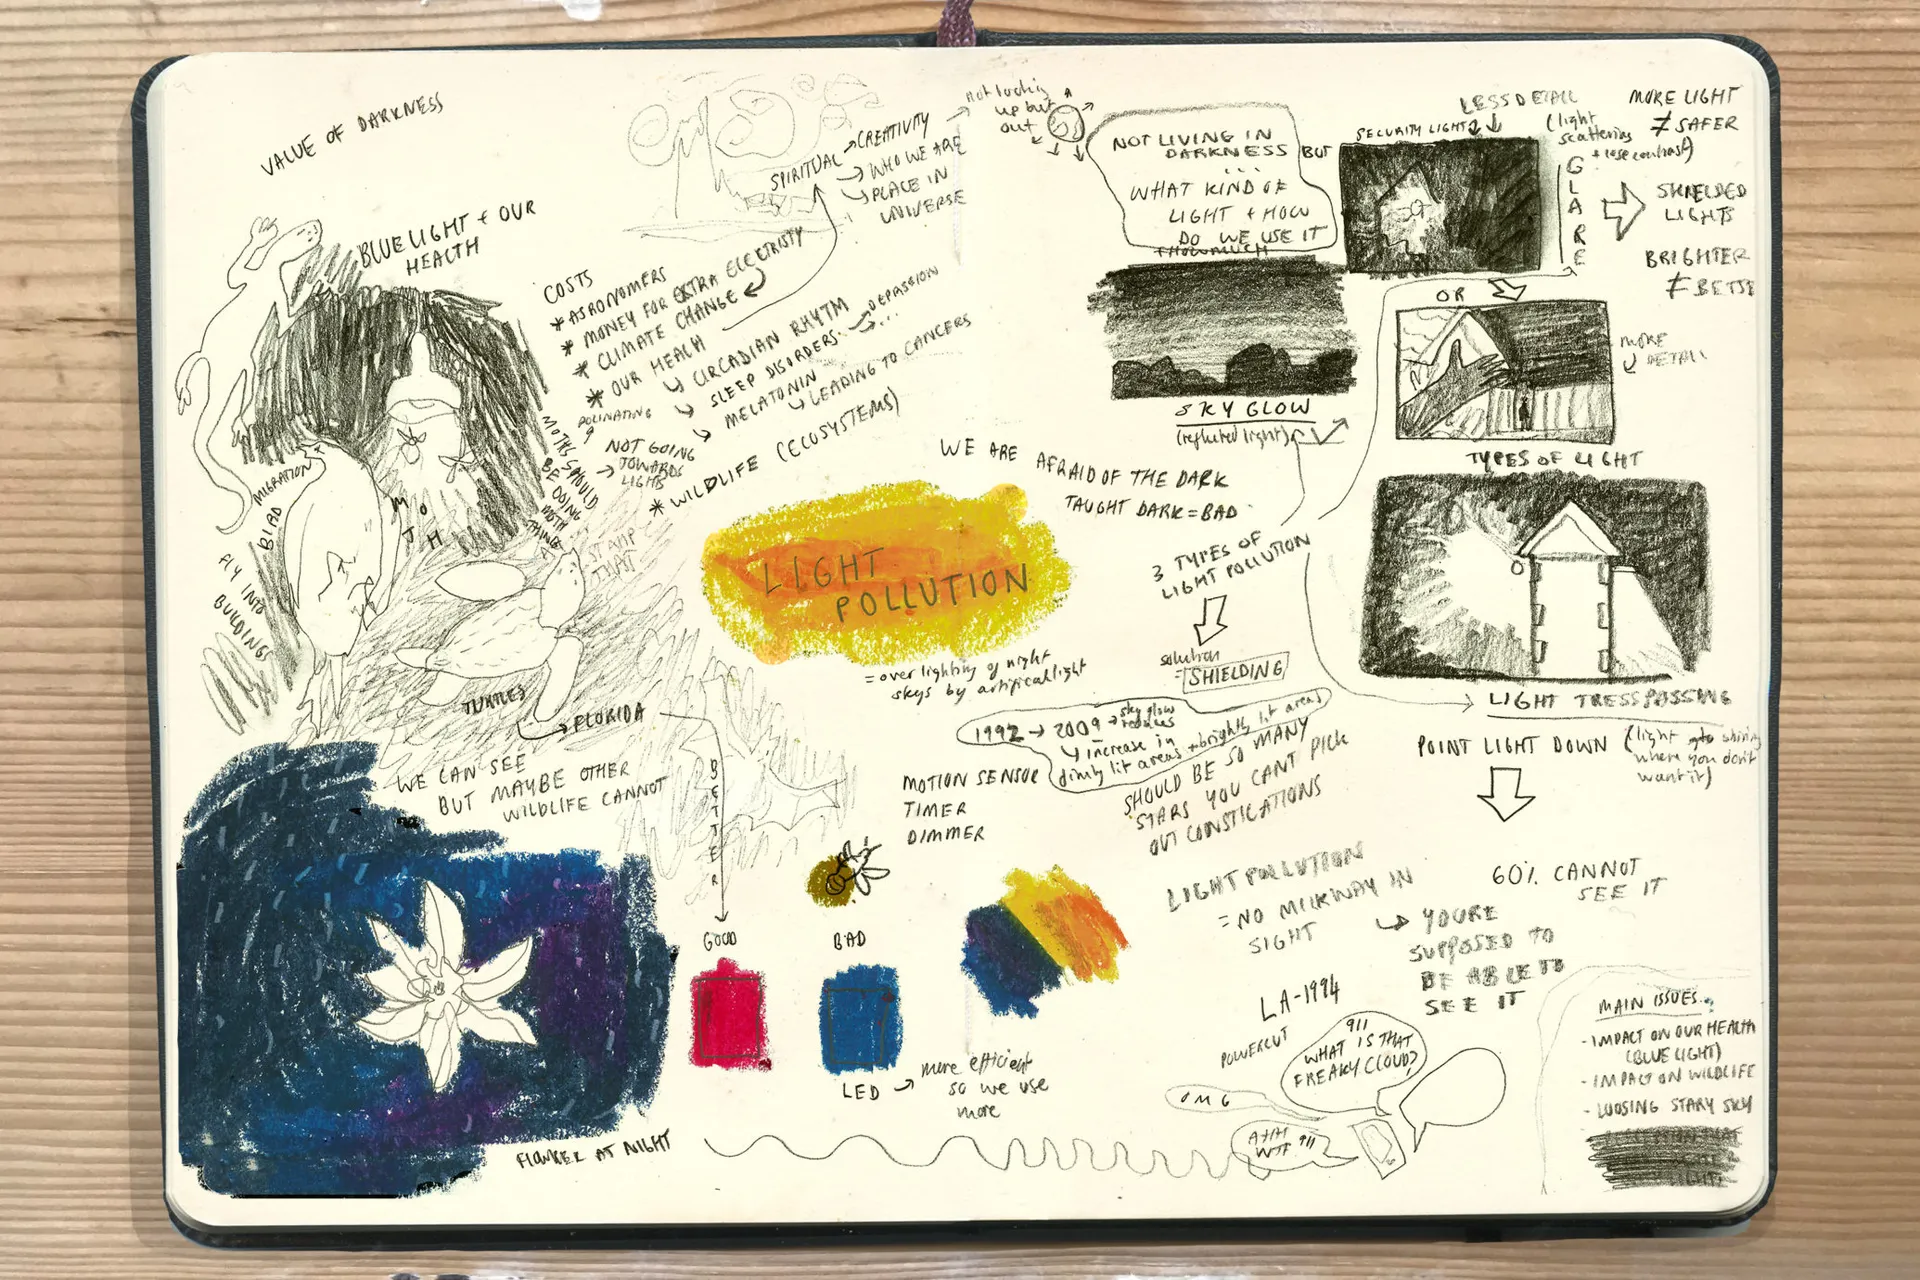 VALUE OF DARKNESS
BLUE LIGHT + OUR
HEALTH
COSTS
* ASRONOMERS
* MONEY FOR EXTRA ELECTRISTY
* CLIMATE CHANGE
* OUR HEACH
CIRCADIAN RHYTM
SLEEP DISORDERS
DEPRSSION
...
MELATONIN
LEADING TO CANCERS
* WILDLIFE (ECCOSYSTEMS)
SPIRITUAL
CREATIVITY
WHO WE ARE
PLACE IN
UNIVERSE
not looking
up but
out
POLINATING
?
NOT GOING
TOWARDS
LIGHTS
MOTHS SHOULD
BE DOING
MOTH
THINGS
MOTH
MIGRATION
BIRD
FLY INTO
BUILDINGS
STAMP
THAT
TURTLES
FLORIDA
WE CAN SEE
BUT MAYBE OTHER
WILDLIFE CANNOT
BETTER
GOOD
BAD
LED
more efficient
so we use
more
FLOWER AT NIGHT
LIGHT
POLLUTION
= over lighting of night
skys by artifical light
WE ARE AFRAID OF THE DARK
TAUGHT DARK = BAD
3 TYPES OF
LIGHT POLLUTION
solution
= SHIELDING
1992 → 2009 → sky glow
reduces
increase in
dimly lit areas + brightly lit areas
MOTION SENSOR
TIMER
DIMMER
SHOULD BE SO MANY
STARS YOU CANT PICK
OUT CONSTICATIONS
LIGHT POLLUTION
= NO MILKWAY IN
SIGHT
YOURE
SUPPOSED TO
BE ABLE TO
SEE IT
60% CANNOT
SEE IT
LA-1994
POWERCUT
911
WHAT IS THAT
FREAKY CLOUD?
OMG
WTF 911
NOT LIVING IN
DARKNESS BUT
...
WHAT KIND OF
LIGHT + HOW
DO WE USE IT
+ HOW MUCH
SKY GLOW
(reflected light)
SECURITY LIGHT
LESS DETAIL
(light
scattering
+ lose contrast)
GLARE
MORE LIGHT
≠ SAFER
SHIELDED
LIGHTS
BRIGHTER
≠ BETTE
OR
MORE
DETAIL
TYPES OF LIGHT
LIGHT TRESSPASSING
POINT LIGHT DOWN
(light shining
where you don't
want it)
MAIN ISSUES
- IMPACT ON OUR HEALTH
(BLUE LIGHT)
- IMPACT ON WILDLIFE
- LOOSING STARY SKY